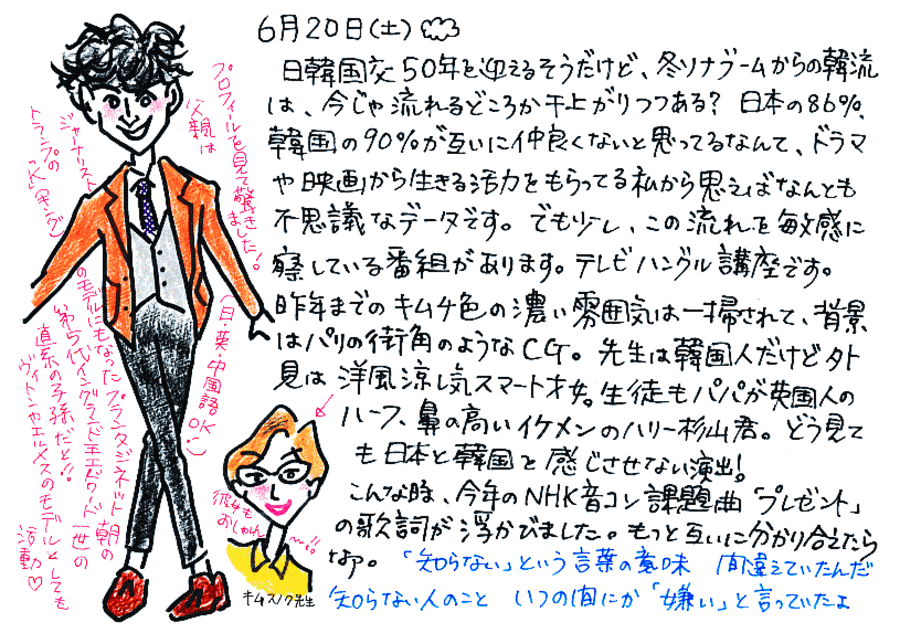 6月20日(土)
日韓国交50年を迎えるそうだけど、冬ソナブームからの韓流
は、今じゃ流れるどころか干上がりつつある? 日本の86%、
韓国の90%が互いに仲良くないと思ってるなんて、ドラマ
や映画から生きる活力をもらってる私から思えばなんとも
不思議なデータです。でも少し、この流れを敏感に
察している番組があります。テレビハングル講座です。
昨年までのキムチ色の濃い雰囲気は一掃されて、背景
はパリの街角のようなCG。先生は韓国人だけど外
見は洋風涼し気スマート才女。生徒もパパが英国人の
ハーフ、鼻の高いイケメンのハリー杉山君。どう見て
も日本と韓国を感じさせない演出!
こんな時、今年のNHK音コン課題曲「プレゼント」
の歌詞が浮かびました。もっと互いに分かり合えたら
なァ。「知らない」という言葉の意味 間違えていたんだ
知らない人のこと いつの間にか「嫌い」と言っていたよ
プロフィールを見て驚きました!
父親は
ジャーナリスト
トランプの「K」(キング)
のモデルにもなったプランタジネット朝の
第5代イングランド王エドワード一世の
直系の子孫だと!!
ヴィトンやエルメスのモデルとしても
活動♡
(日・英・中国語OK!)
彼女も
おしゃれ〜!!
キムスノク先生